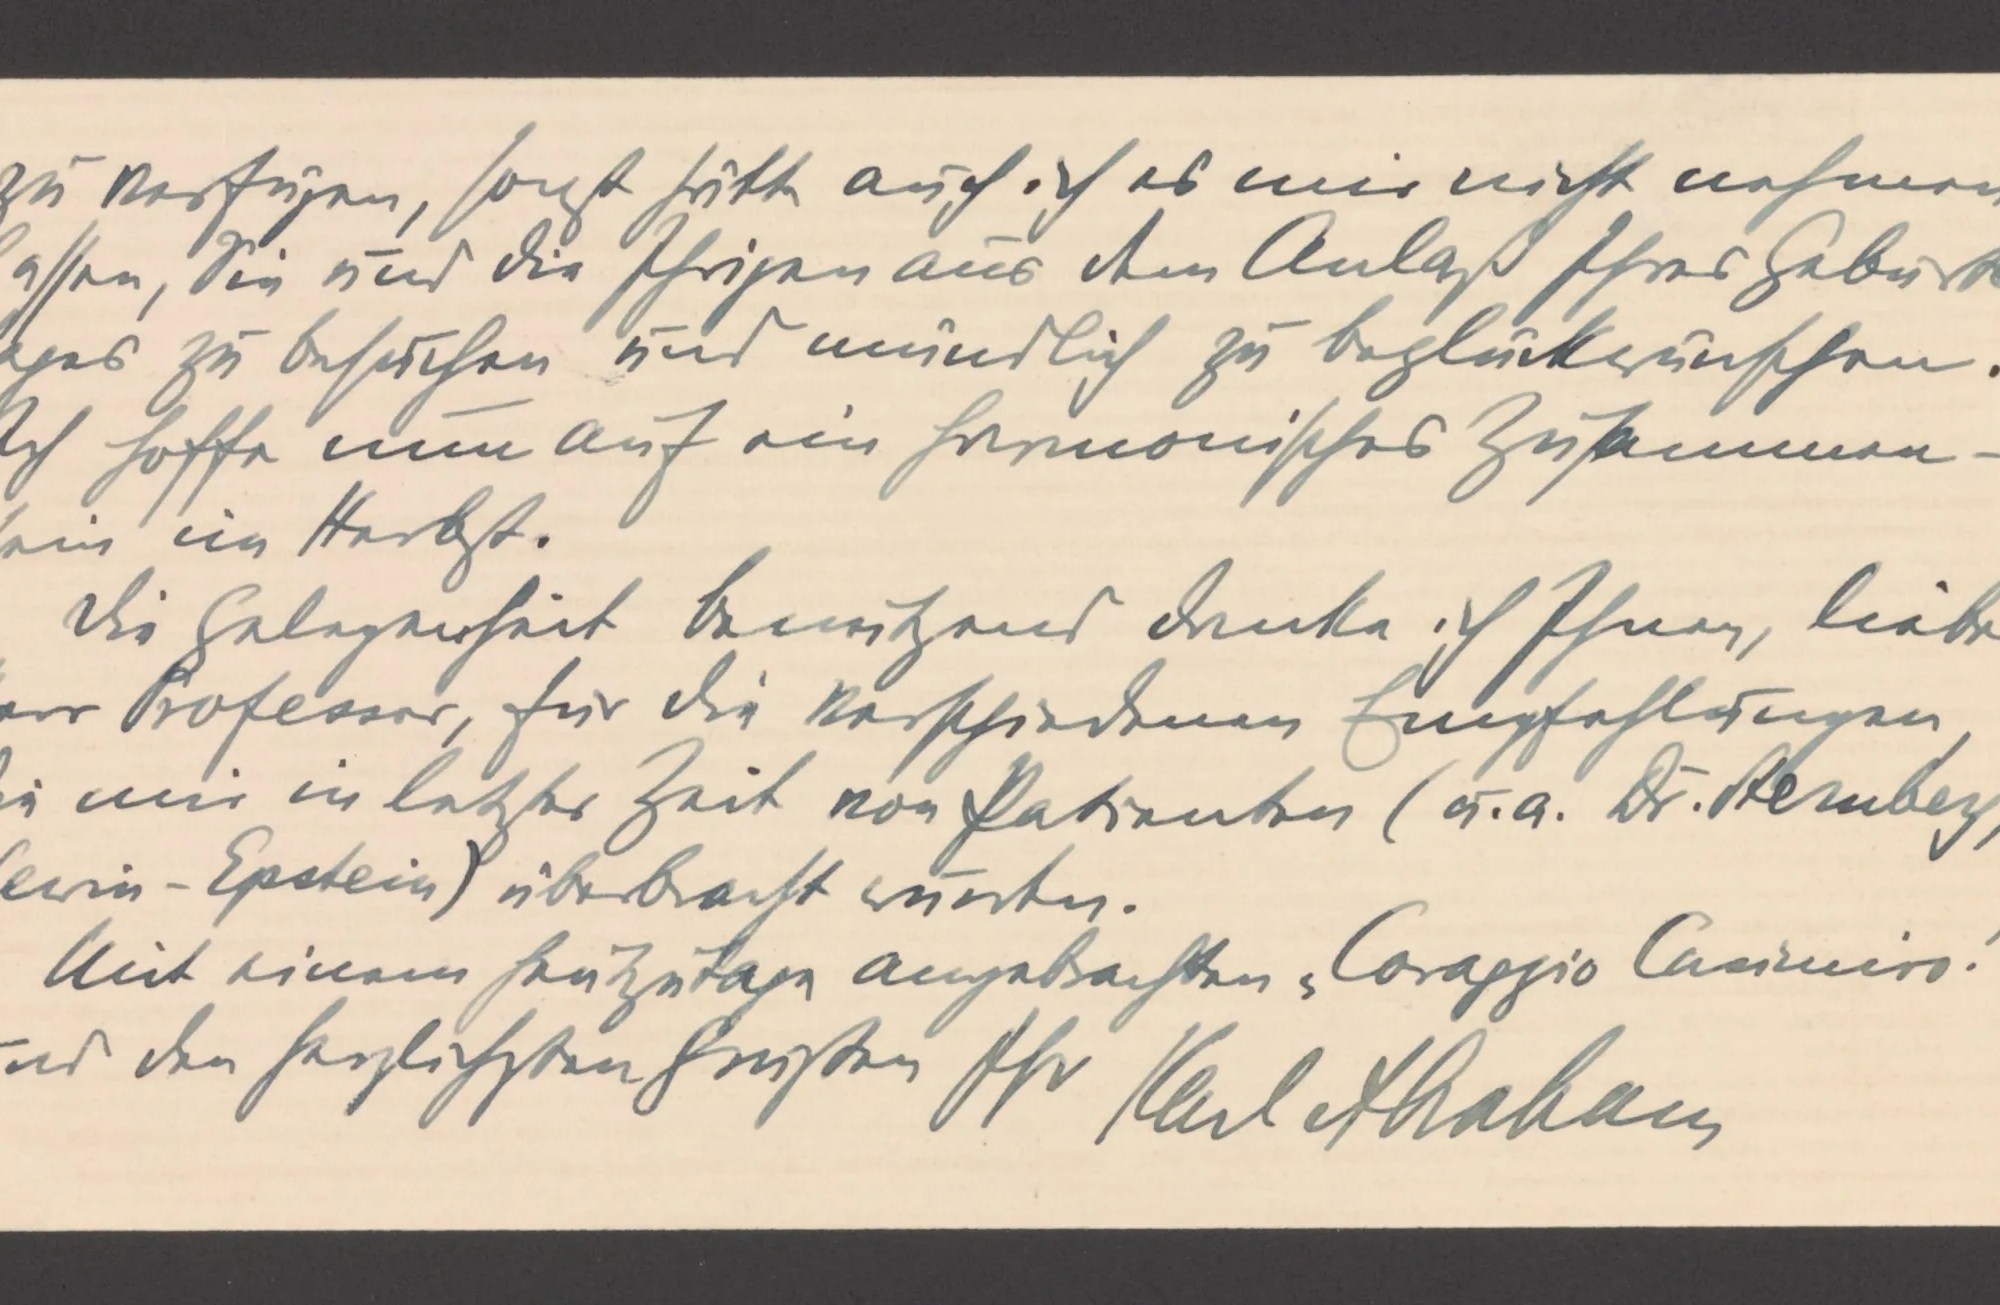 zu verfügen, sonst hätte auch ich es mir nicht nehmen
lassen, Sie und die Ihrigen aus dem Anlaß Ihres Geburts
ages zu besuchen und mündlich zu beglückwünschen.
Ich hoffe nun auf ein harmonisches Zusammen-
sein im Herbst.
Die Gelegenheit benützend danke ich Ihnen, lieber
Herr Professor, für die verschiedenen Empfehlungen,
die mir in letzter Zeit von Patienten (u. a. Dr. Sternberg,
Lewin-Epstein) überbracht wurden.
Mit einem heutzutage angebrachten „Coraggio Casimiro!
und den herzlichsten Grüßen Ihr Karl Abraham